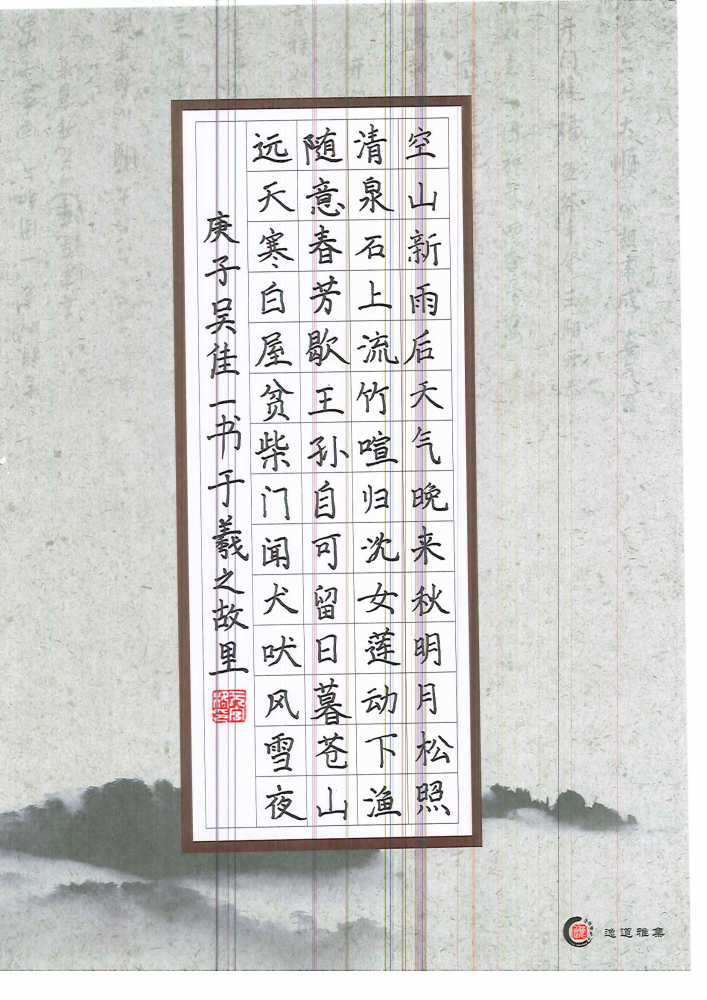 空山新雨后天气晚来秋明月松照
清泉石上流竹喧归沈女莲动下渔
随意春芳歇王孙自可留日暮苍山
远天寒白屋贫柴门闻犬吠风雪夜
庚子吴佳一书于羲之故里
逸道雅集